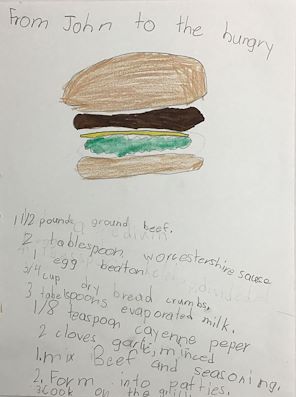 From John to the hungry
1 1/2 pounds ground beef.
2 tablespoon worcestershire sause
1 egg beaton
3/4 cup dry bread crumbs.
3 tabelspoons evaporated milk.
1/8 teaspoon cayenne peper
2 cloves garlic, minced
1. mix Beef and seasoning.
2. Form into patties.
3 Cook on the grill